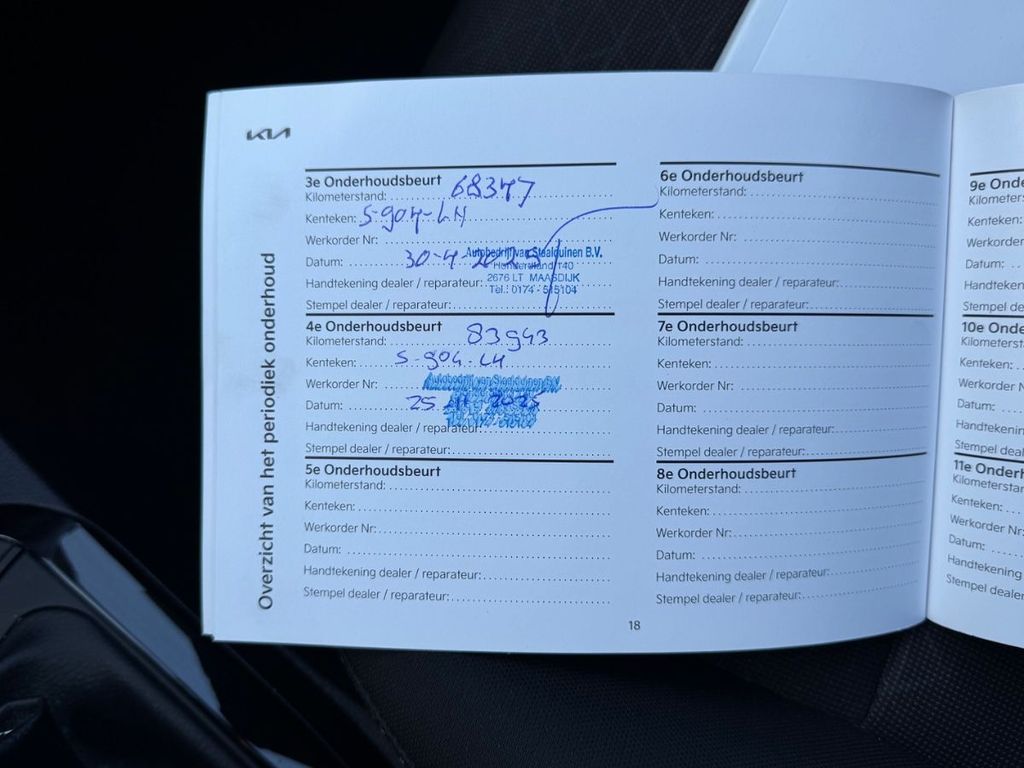 KIA
Overzicht van het periodiek onderhoud
3e Onderhoudsbeurt
Kilometerstand: 68347
Kenteken: S-904-LH
Werkorder Nr:
Datum: 30-4-2025
Autobedrijf van Staalduinen B.V.
Honderdland 140
2676 LT MAASDIJK
Tel.: 0174 - 515104
Handtekening dealer / reparateur:
Stempel dealer / reparateur:
4e Onderhoudsbeurt
Kilometerstand: 83943
Kenteken: S-904-LH
Werkorder Nr:
Autobedrijf van Staalduinen B.V.
Datum: 25 11 2025
Handtekening dealer / reparateur:
Stempel dealer / reparateur:
5e Onderhoudsbeurt
Kilometerstand:
Kenteken:
Werkorder Nr:
Datum:
Handtekening dealer / reparateur:
Stempel dealer / reparateur:
6e Onderhoudsbeurt
Kilometerstand:
Kenteken:
Werkorder Nr:
Datum:
Handtekening dealer / reparateur:
Stempel dealer / reparateur:
7e Onderhoudsbeurt
Kilometerstand:
Kenteken:
Werkorder Nr:
Datum:
Handtekening dealer / reparateur:
Stempel dealer / reparateur:
8e Onderhoudsbeurt
Kilometerstand:
Kenteken:
Werkorder Nr:
Datum:
Handtekening dealer / reparateur:
Stempel dealer / reparateur:
18
9e Ond
Kilometers
Kenteken:
Werkorder
Datum:
Handteken
Stempel de
10e Onde
Kilometerst
Kenteken:
Werkorder
Datum:
Handtekenin
Stempel deal
11e Onderh
Kilometerstar
Kenteken:
Werkorder Nr
Datum:
Handtekening
Stempel dealer